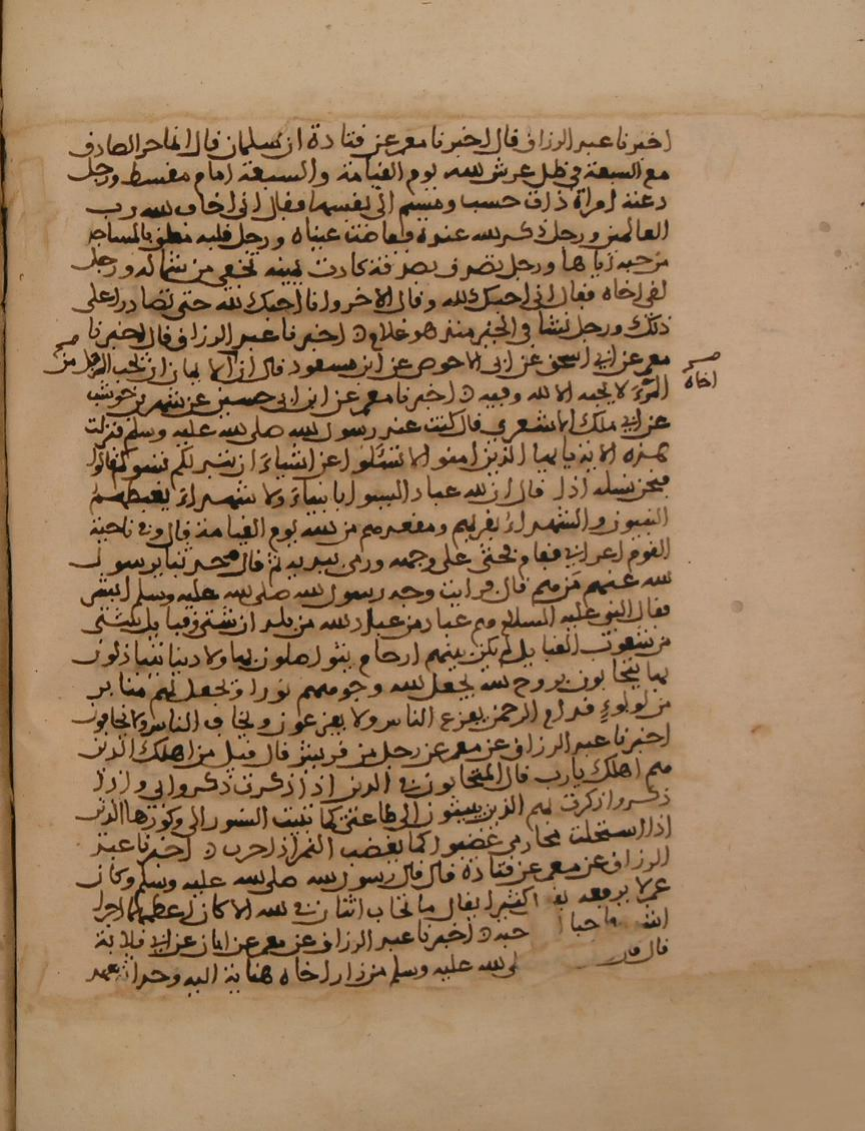 اخبرنا عبد الرزاق قال اخبرنا معمر عن قتادة ان سلمان قال التاجر الصادق
مع السبعة في ظل عرش الله يوم القيامة والسبعة امام مقسط ورجل
دعته امراة ذات حسب وميسم الى نفسها فقال اني اخاف الله رب
العالمين ورجل ذكر الله عنده ففاضت عيناه ورجل قلبه معلق بالمساجد
من حبه اياها ورجل تصدق بصدقة كادت يمينه تخفي من شماله ورجل
لقي اخاه فقال اني احبك لله وقال الاخر وانا احبك لله حتى تصادرا على
ذلك ورجل نشا في الخير منذ هو غلام اخبرنا عبد الرزاق قال اخبرنا
معمر عن ابي اسحق عن ابي الاحوص عن ابن مسعود قال ان الايمان ان يحب الرجل
اخاه
لا يحبه الا لله وفيه اخبرنا معمر عن ابن ابي حسين عن شهر بن حوشب
عن ابي ملك الاشعري قال كنت عند رسول الله صلى الله عليه وسلم فنزلت
هذه الاية يايها الذين امنوا لا تسئلوا عن اشياء ان تبد لكم تسوكم قال
فنحن نسله اذا قال ان لله عبادا ليسوا بانبياء ولا شهداء يغبطهم
النبيون والشهداء بقربهم ومقعدهم من الله يوم القيامة قال وفي ناحية
القوم اعرابي فقام فجثى على وجهه ورمى بيديه ثم قال حدثنا يرسول
الله عنهم من هم قال فرايت وجه رسول الله صلى الله عليه وسلم
فقال النبي عليه السلام هم عباد من عباد الله من بلدان شتى وقبايل شتى
من شعوب القبايل لم تكن بينهم ارحام يتواصلون بها ولا دنيا يتباذلون
بها يتحابون بروح الله يجعل الله وجوههم نورا ويجعل لهم منابر
من لولوء قدام الرحمن يفزع الناس ولا يفزعون ويخاف الناس ولا يخافون
اخبرنا عبد الرزاق عن معمر عن رجل من قريش قال قيل من اهلك الذين
هم اهلك يارب قال المتحابون في الذين اذا ذكرت ذكروا بي واذا
ذكروا ذكرت بهم الذين ينيبون الى طاعتي كما تنيب النسور الى وكورها الذين
اذا استحلت محارمي غضبوا كما يغضب النمر اذا حرب اخبرنا عبد
الرزاق عن معمر عن قتادة قال قال رسول الله صلى الله عليه وسلم وكان
يرفعه يقال ما تحاب اثنان في الله الا كان اعظمهما اجرا
حبه اخبرنا عبد الرزاق عن معمر عن ابان عن ابي قلابة
قال الله عليه وسلم من زار اخاه اليه